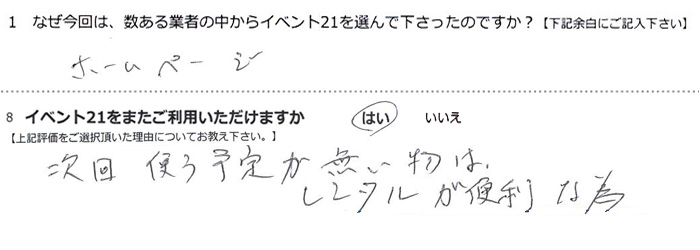 1 なぜ今回は、数ある業者の中からイベント21を選んで下さったのですか？【下記余白にご記入下さい】
ホームページ
8 イベント21をまたご利用いただけますか はい いいえ
【上記評価をご選択頂いた理由についてお教え下さい。】
次回 使う予定が無い物は、
レンタルが便利な為